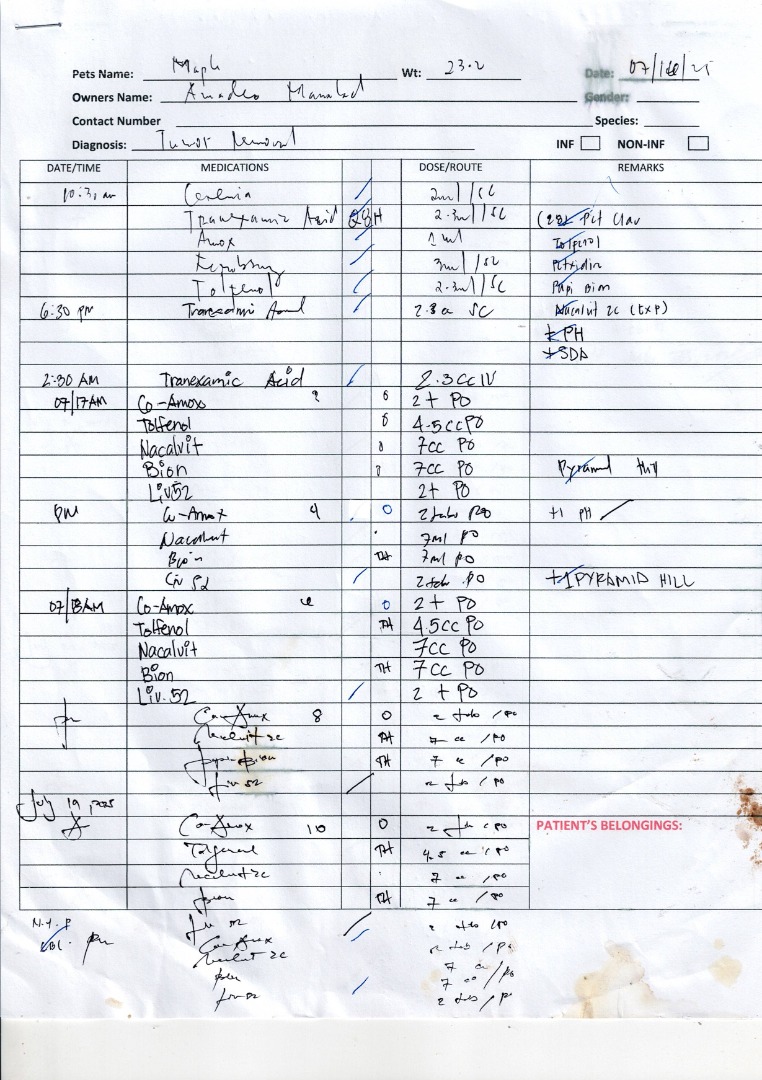 Pets Name: Wt: 23.2 Date: 07/ /25
Owners Name: Amadeo Gender:
Contact Number Species:
Diagnosis: Tumor Removal INF NON-INF
DATE/TIME MEDICATIONS DOSE/ROUTE REMARKS
10:30 am Cerenia 2ml/SC
Tranexamic Acid Q8H 2.3ml/SC
Amox 1 ml Tolfenol
3ml/SC
Tolfenol 2.3ml/SC
6:30 PM 2.3 cc SC Nacalvit 2c (EXP)
+ PH
+SDA
2:30 AM Tranexamic Acid 2.3cc IV
07/17AM Co-Amox 2 8 2 t PO
Tolfenol 8 4.5cc PO
Nacalvit 8 7cc PO
Bion 8 7cc PO Pyramid Hill
Liv52 2 t PO
PM Co-Amox 4 0 2 tabs PO +1 PH
Nacalvit 7ml PO
Bion TH 7ml PO
Liv 52 2 tab PO +1 PYRAMID HILL
07/18AM Co-Amox 6 0 2 t PO
Tolfenol TH 4.5cc PO
Nacalvit 7cc PO
Bion TH 7cc PO
Liv.52 2 t PO
pm Co-Amox 8 0 2 tabs / PO
Nacalvit 2c TH 7 cc / PO
Bion TH 7 cc / PO
Liv 52 2 tabs / PO
July 19, 2025
Co-Amox 10 0 2 tabs / PO PATIENT'S BELONGINGS:
Tolfenol TH 4.5 cc / PO
Nacalvit 2c 7 cc / PO
Bion TH 7 cc / PO
Liv 52 2 tabs / PO
pm Co-Amox 2 tabs / PO
Nacalvit 2c 7 cc
Bion 7 cc / PO
Liv 52 2 tabs / PO